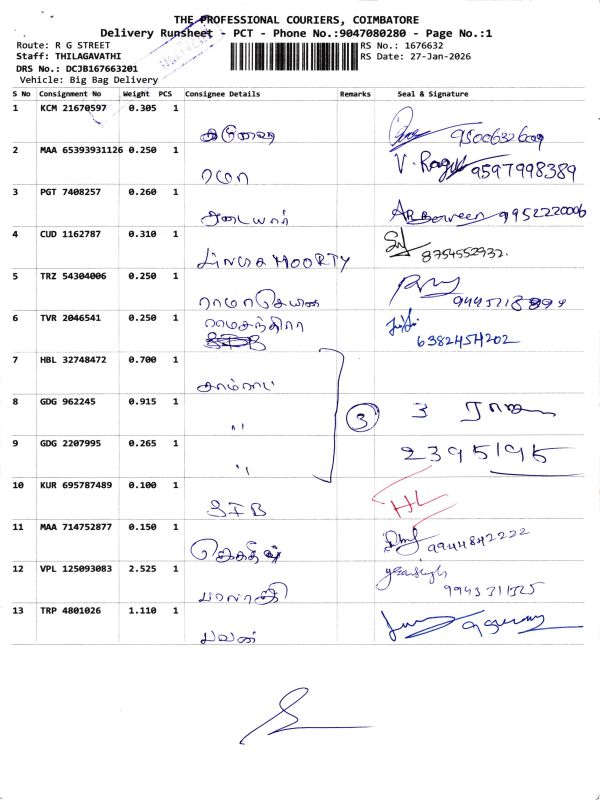 THE PROFESSIONAL COURIERS, COIMBATORE
Delivery Runsheet - PCT - Phone No.:9047080280 - Page No.:1
Route: R G STREET RS No.: 1676632
Staff: THILAGAVATHI RS Date: 27-Jan-2026
DRS No.: DCJB167663201
Vehicle: Big Bag Delivery
S No Consignment No Weight PCS Consignee Details Remarks Seal & Signature
1 KCM 21670597 0.305 1
9500632609
2 MAA 65393931126 0.250 1
ரமா V. Ragu 9597998389
3 PGT 7408257 0.260 1
அடையார் 9952220006
4 CUD 1162787 0.310 1
MOORTY 8754552932.
5 TRZ 54304006 0.250 1
6 TVR 2046541 0.250 1
6382454202
7 HBL 32748472 0.700 1
8 GDG 962245 0.915 1
" 3 3
9 GDG 2207995 0.265 1
" 2395195
10 KUR 695787489 0.100 1
SIB HL
11 MAA 714752877 0.150 1
9944842222
12 VPL 125093083 2.525 1
பாலாஜி
13 TRP 4801026 1.110 1
பவன்